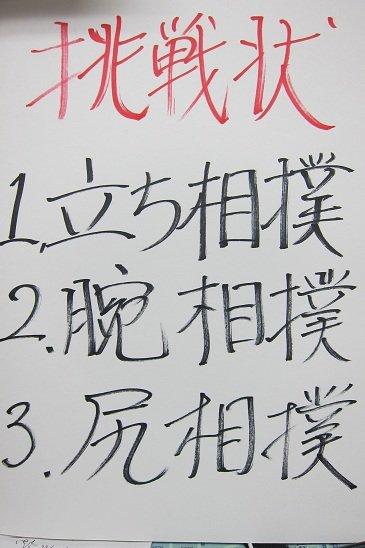 挑戦状
1.立ち相撲
2.腕相撲
3.尻相撲